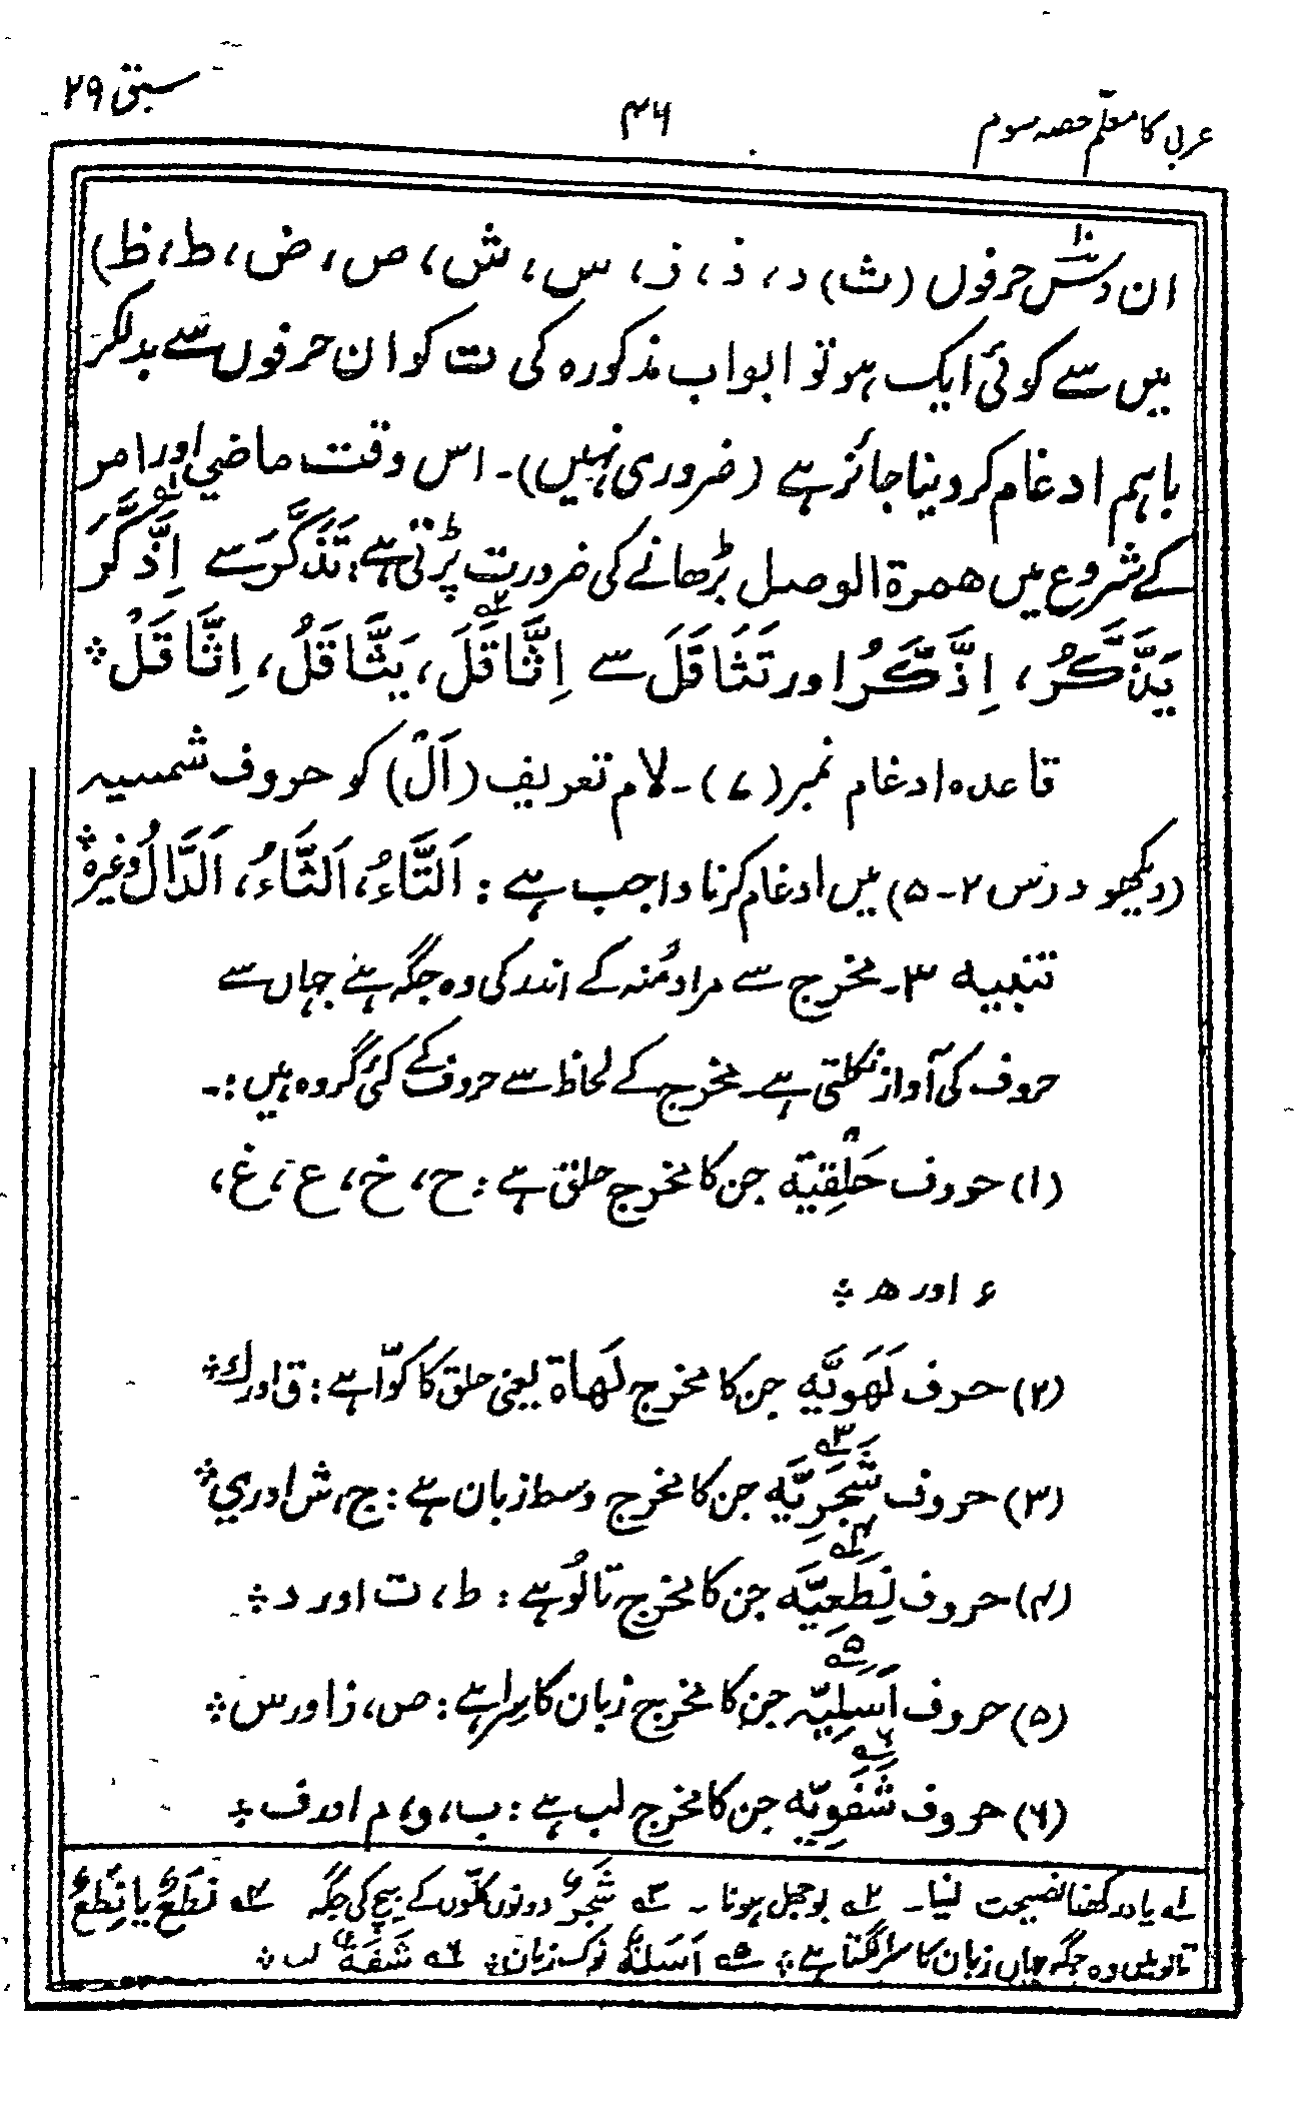 عربی کا معلّم حصہ سوم
۴۶
سبق ۲۹
ان دسؔ۱۰ حرفوں (ث) د، ذ، ز، س، ش، ص، ض، ط، ظ)
میں سے کوئی ایک ہو تو ابواب مذکورہ کی ت کو ان حرفوں سے بدلکر
باہم ادغام کر دینا جائز ہے (ضروری نہیں)۔ اس وقت ماضی اور امر
کے شروع میں ھمزۃ الوصل بڑھانے کی ضرورت پڑتی ہے: تَذَكَّرَ سے اِذَّكَّرَ۱ه
يَذَّكَّرُ، اِذَّكَّرُ اور تَثَاقَلَ سے اِثَّاقَلَ۲ه، يَثَّاقَلُ، اِثَّاقَلْ ؞
قاعدہ ادغام نمبر (۷)۔ لام تعریف (اَلْ) کو حروف شمسیہ
(دیکھو درس ۲-۵) میں ادغام کرنا واجب ہے: اَلتَّاءُ، اَلثَّاءُ، اَلدَّالُ وغیرہ ؞
تنبیہ ۳۔ مخرج سے مراد مُنہ کے اندر کی وہ جگہ ہے جہاں سے
حروف کی آواز نکلتی ہے۔ مخرج کے لحاظ سے حروف کے کئی گروہ ہیں:۔
(۱) حروف حَلْقِیّہ جن کا مخرج حلق ہے: ح، خ، ع، غ،
ء اور ھ ؞
(۲) حرف لَهَوِیَّه جن کا مخرج لَهَاة یعنی حلق کا کوّا ہے: ق اور ك ؞
(۳) حروف شَجَرِیَّه۳ه جن کا مخرج وسط زبان ہے: ج، ش اور ي ؞
(۴) حروف نِطَعِیَّه۴ه جن کا مخرج تالُو ہے: ط، ت اور د ؞
(۵) حروف اَسَلِیّہ۵ه جن کا مخرج زبان کا سِرا ہے: ص، ز اور س ؞
(۶) حروف شَفَوِیّه۶ه جن کا مخرج لب ہے: ب، و، م اور ف ؞
۱ه یاد رکھنا نصیحت لینا۔ ۲ه بوجھل ہونا۔ ۳ه شَجْرٌ دونوں کلّوں کے بیچ کی جگہ ۴ه نَطَعٌ یا نِطَعٌ
تالو میں وہ جگہ جہاں زبان کا سرا لگتا ہے ؞ ۵ه اَسَلَةٌ نوک زبان ؞ ۶ه شَفَةٌ لب ؞